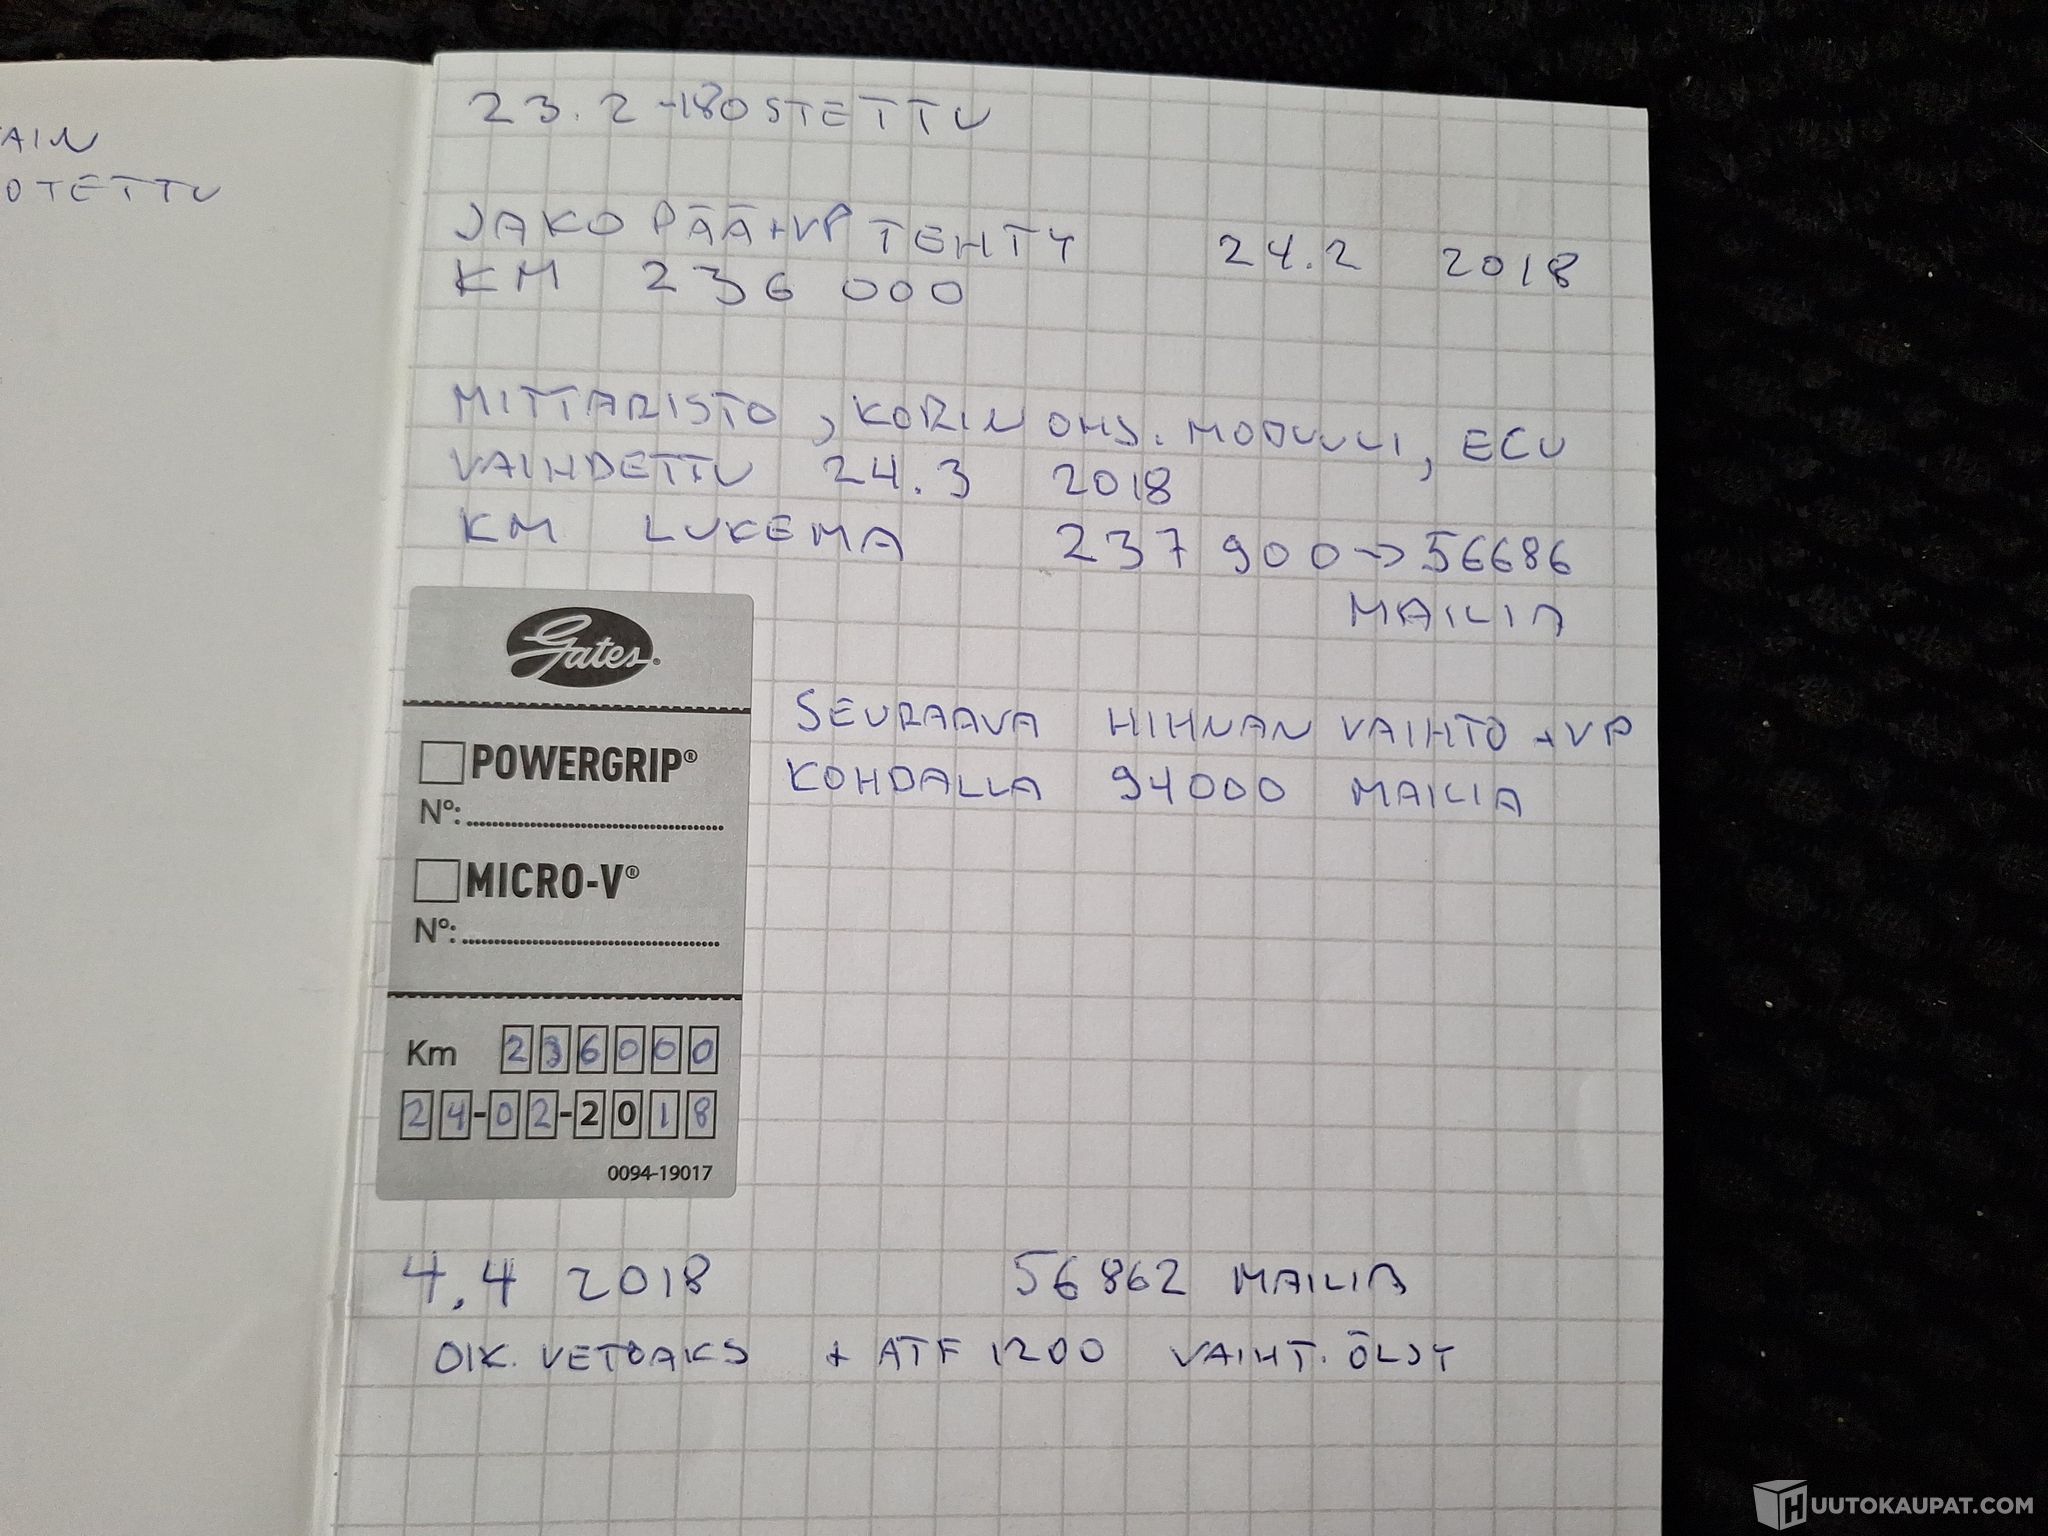 AIN
OTETTU
23.2 -18 OSTETTU
JAKO PÄÄ+VP TEHTY 24.2 2018
KM 236 000
MITTARISTO, KORIN OHJ. MODUULI, ECU
VAIHDETTU 24.3 2018
KM LUKEMA 237 900 -> 56686
MAILIA
Gates
POWERGRIP®
N°:
MICRO-V®
N°:
Km 236000
24-02-2018
0094-19017
SEURAAVA HIHNAN VAIHTO + VP
KOHDALLA 94000 MAILIA
4.4 2018 56862 MAILIA
OIK. VETOAKS + ATF 1200 VAIHT. ÖLJY
HUUTOKAUPAT.COM